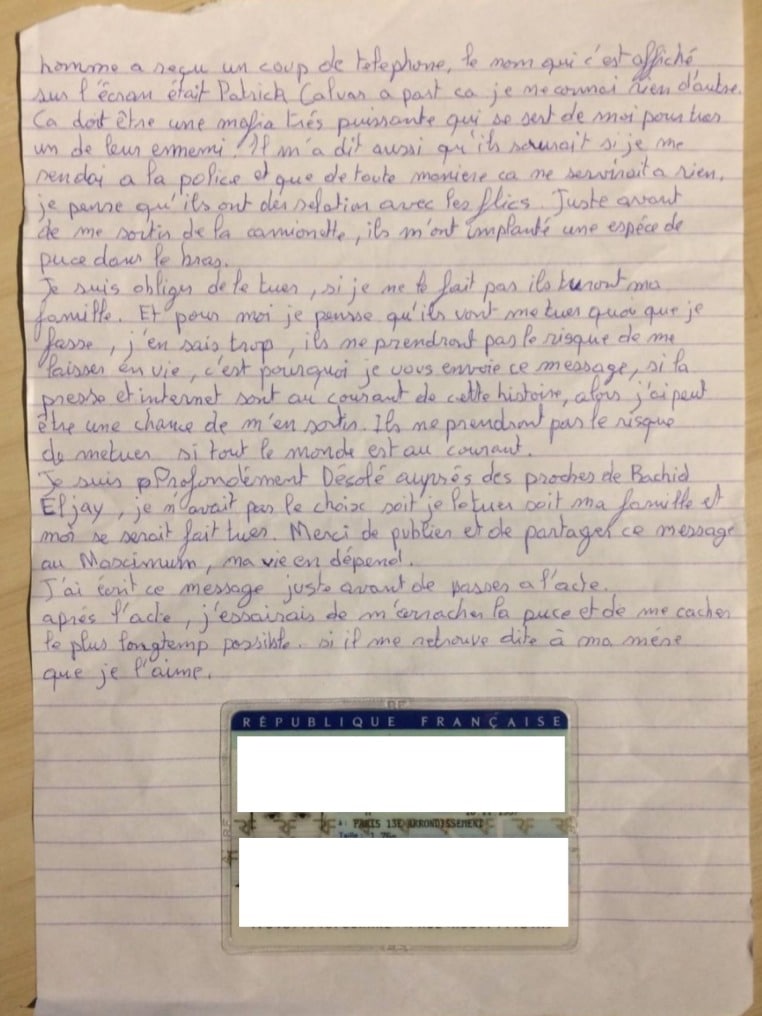 homme a reçu un coup de telephone, le nom qui c'est affiché
sur l'écran était Patrick Calvar a part ca je ne connai rien d'autre.
Ca doit être une mafia très puissante qui se sert de moi pour tuer
un de leur ennemi. Il m'a dit aussi qu'ils saurait si je me
rendai a la police et que de toute maniere ca ne servirait a rien.
je pense qu'ils ont des relation avec les flics. Juste avant
de me sortir de la camionette, ils m'ont implanté une espéce de
puce dans le bras.
Je suis obliger de le tuer, si je ne le fait pas ils turont ma
famille. Et pour moi je pensse qu'ils vont me tuer quoi que je
fasse, j'en sais trop, ils ne prendront pas le risque de me
laisser en vie, c'est pourquoi je vous envoie ce message, si la
presse et internet sont au courant de cette histoire, alors j'ai peut
être une chance de m'en sortir. Ils ne prendront pas le risque
de me tuer si tout le monde est au courant.
Je suis Profondément Désolé auprés des proches de Rachid
Eljay, je n'avait pas le choix soit je le tuer soit ma famille et
moi se serait fait tuer. Merci de publier et de partager ce message
au Maximum, ma vie en dépend.
J'ai écrit ce message juste avant de passer a l'acte.
aprés l'acte, j'essairais de m'arracher la puce et de me cacher
le plus longtemp possible. si il me retrouve dite à ma mère
que je l'aime.
RÉPUBLIQUE FRANÇAISE
à: PARIS 13E ARRONDISSEMENT